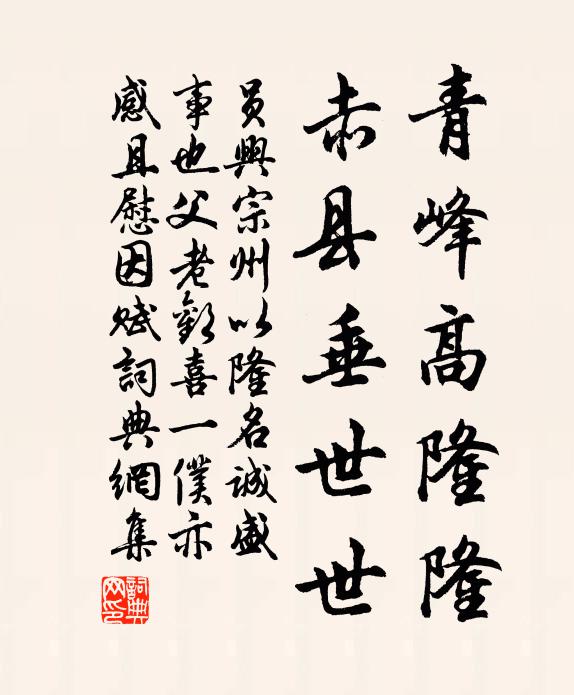 青峰高隆隆
赤县垂世世
员興宗州以隆名诚盛
事也父老歡喜一僕亦
感且慰因赋詞典網集
詞典
网印